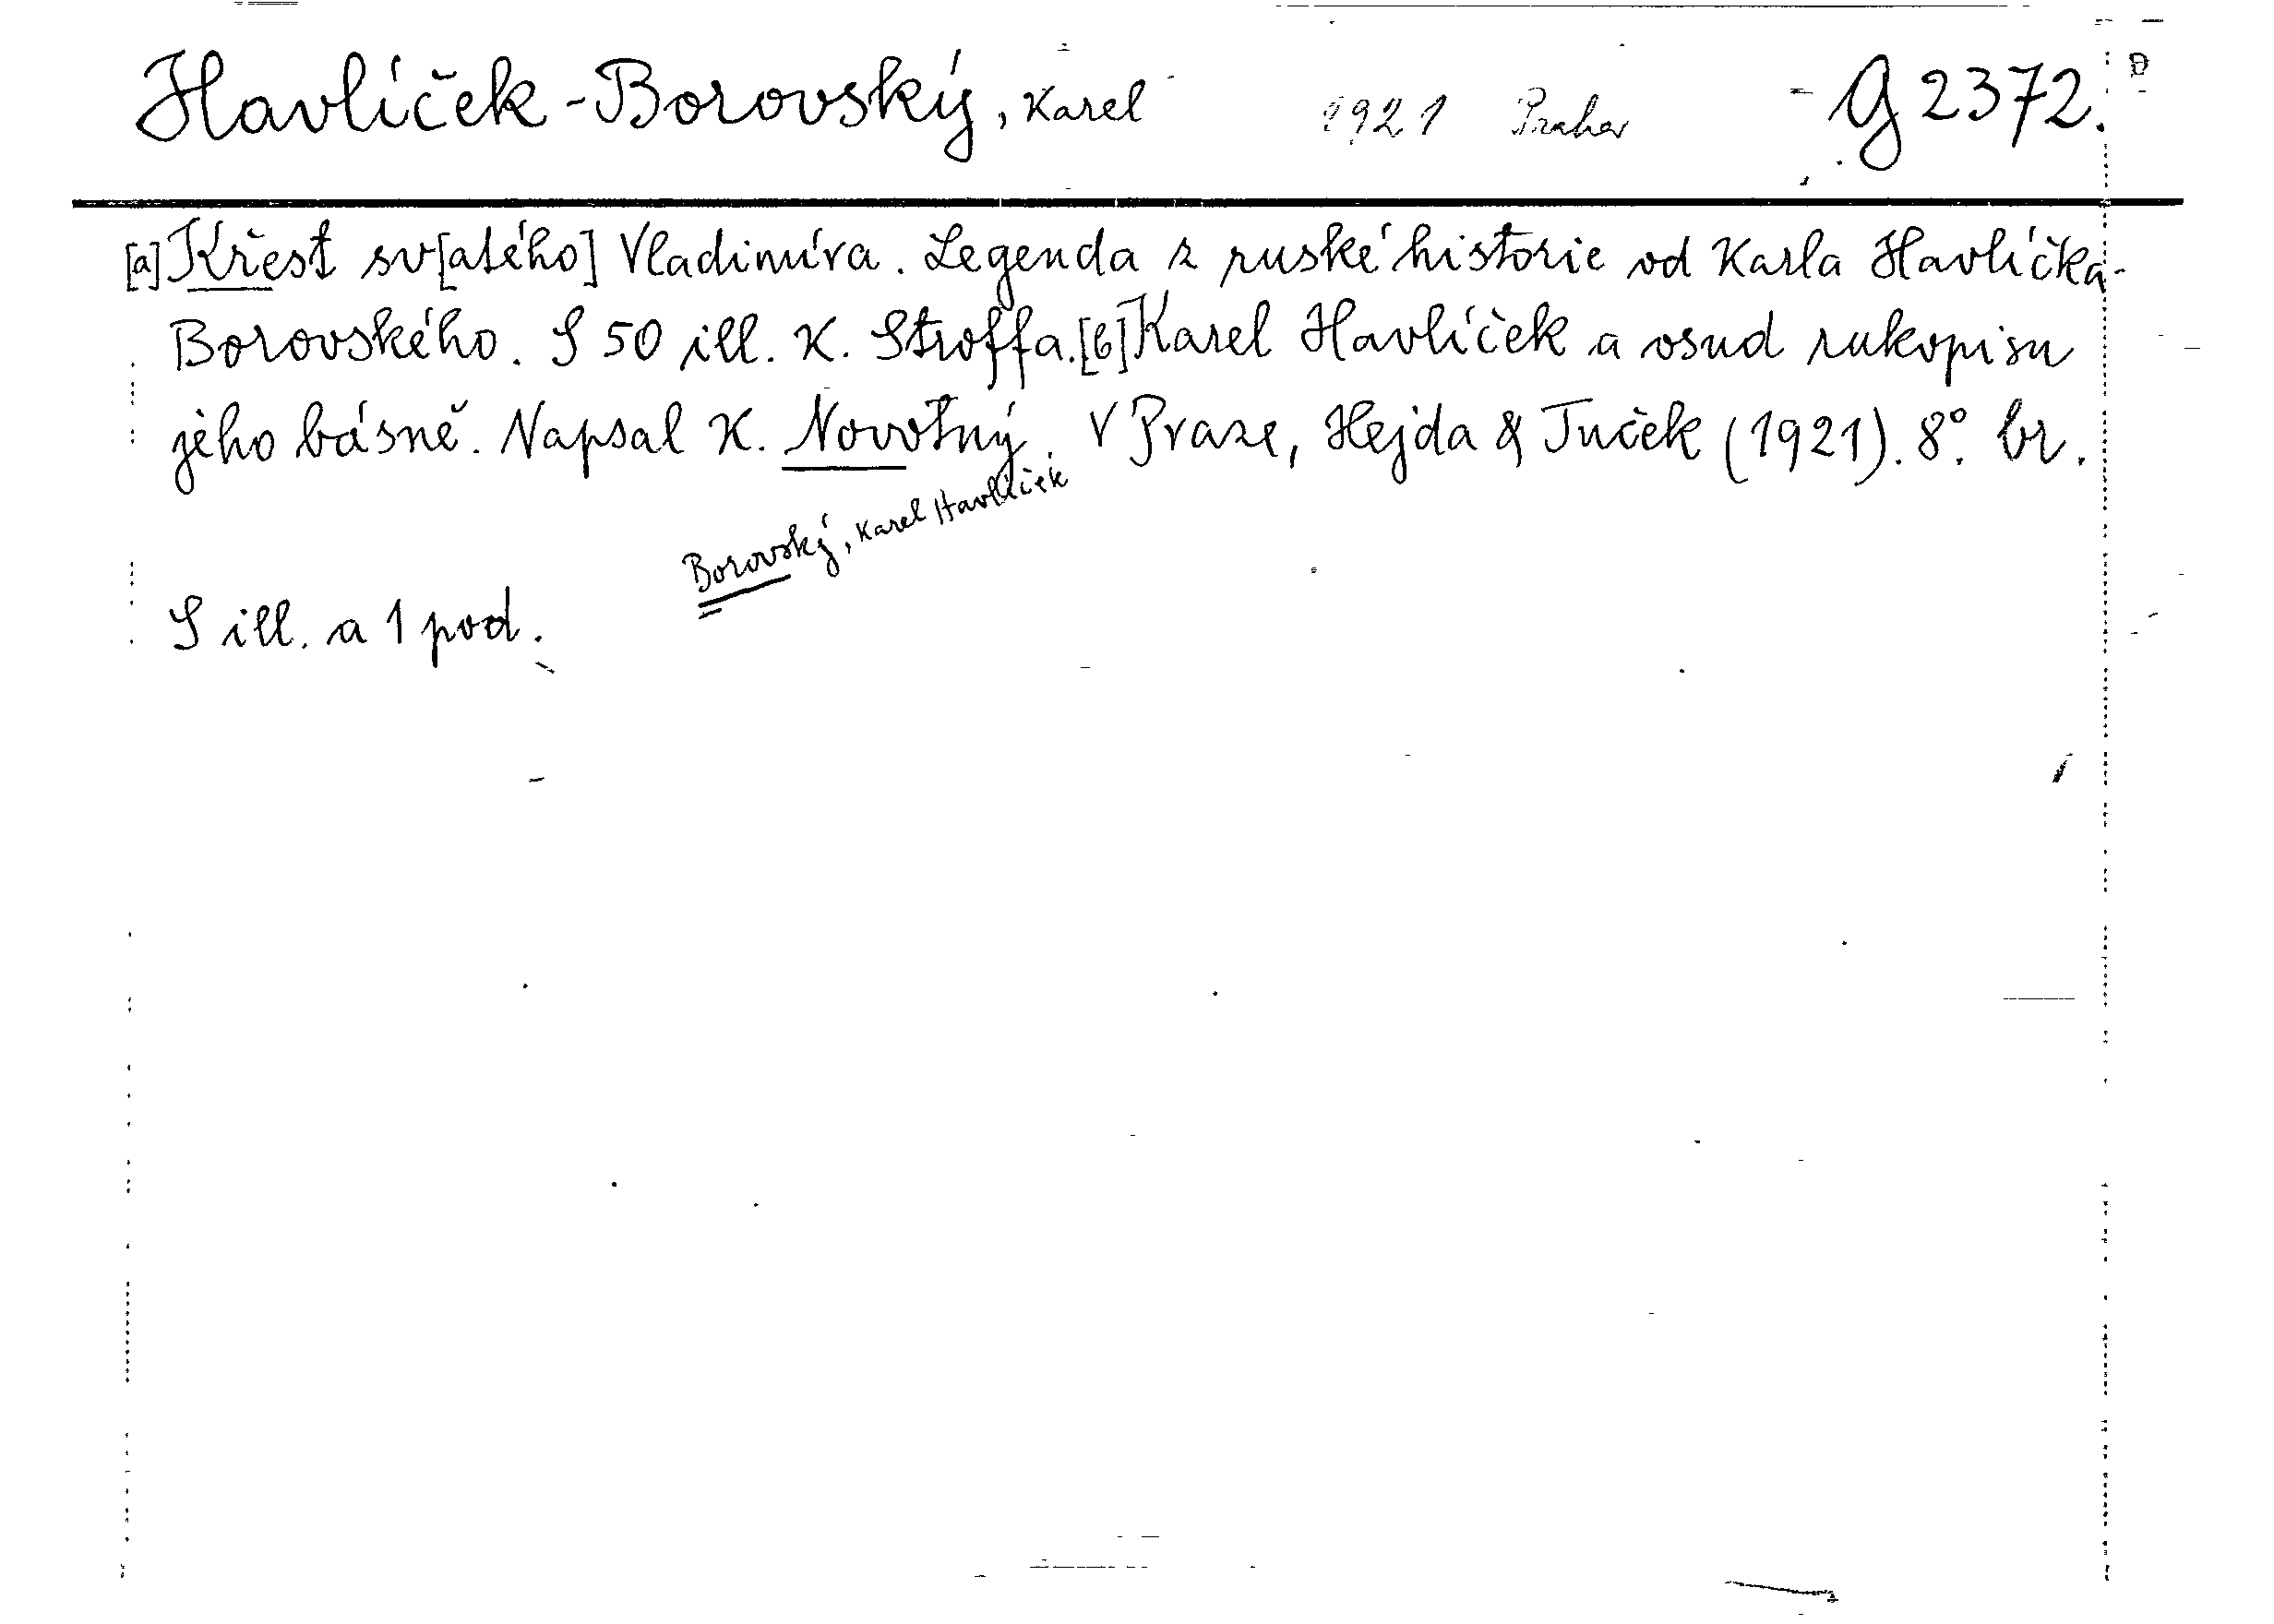 Havlíček-Borovský, Karel 1921 Praha G 2372.
[a] Křest sv[atého] Vladimíra. Legenda z ruské historie od Karla Havlíčka-
Borovského. S 50 ill. K. Stroffa. [b] Karel Havlíček a osud rukopisu
jeho básně. Napsal K. Novotný. V Praze, Hejda & Tuček (1921). 8°. br.
Borovský, Karel Havlíček
S ill. a 1 pod.